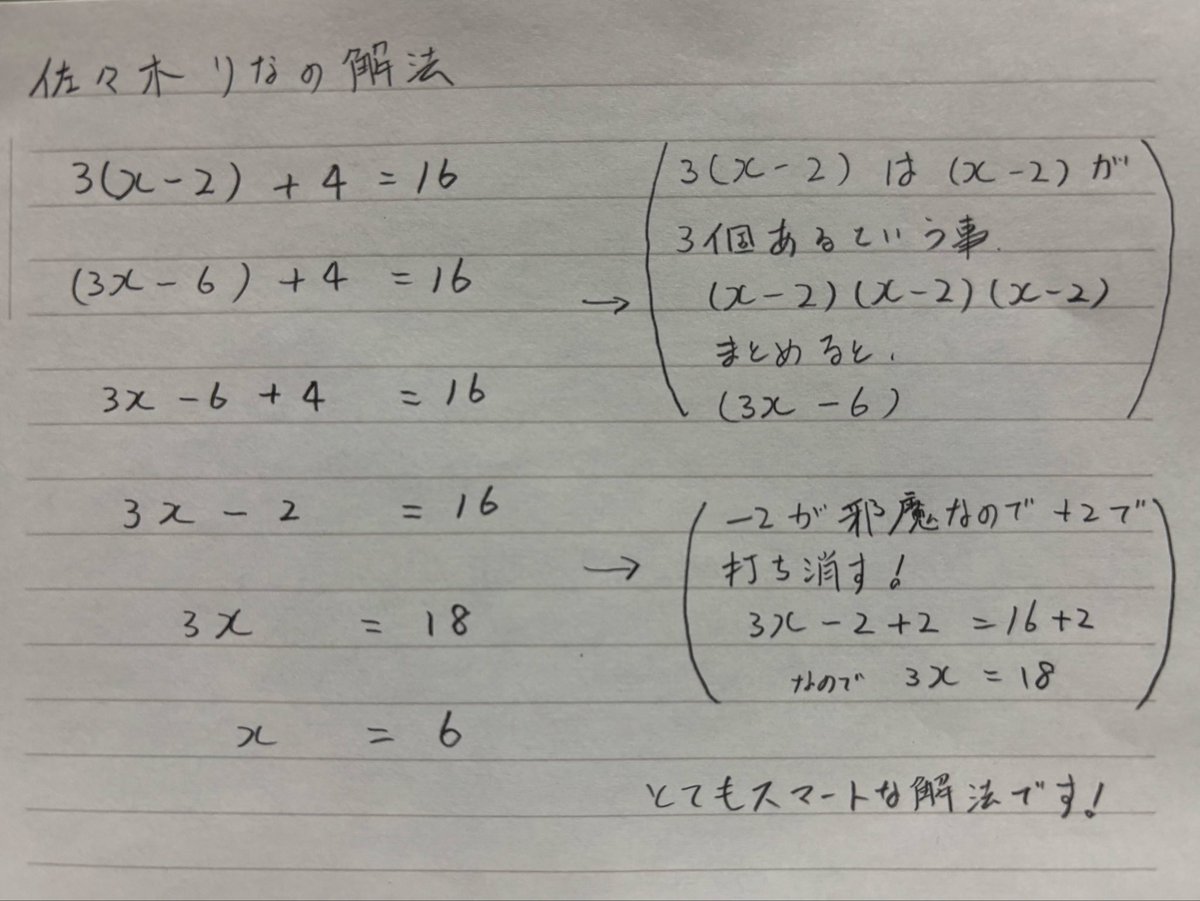 佐々木りなの解法
3(x-2) + 4 = 16
(3x-6) + 4 = 16
3x-6+4 = 16
3x-2 = 16
3x = 18
x = 6
→
3(x-2) は (x-2) が
3個あるという事.
(x-2)(x-2)(x-2)
まとめると、
(3x-6)
→
-2が邪魔なので+2で
打ち消す!
3x-2+2 = 16+2
なので 3x = 18
とてもスマートな解法です!